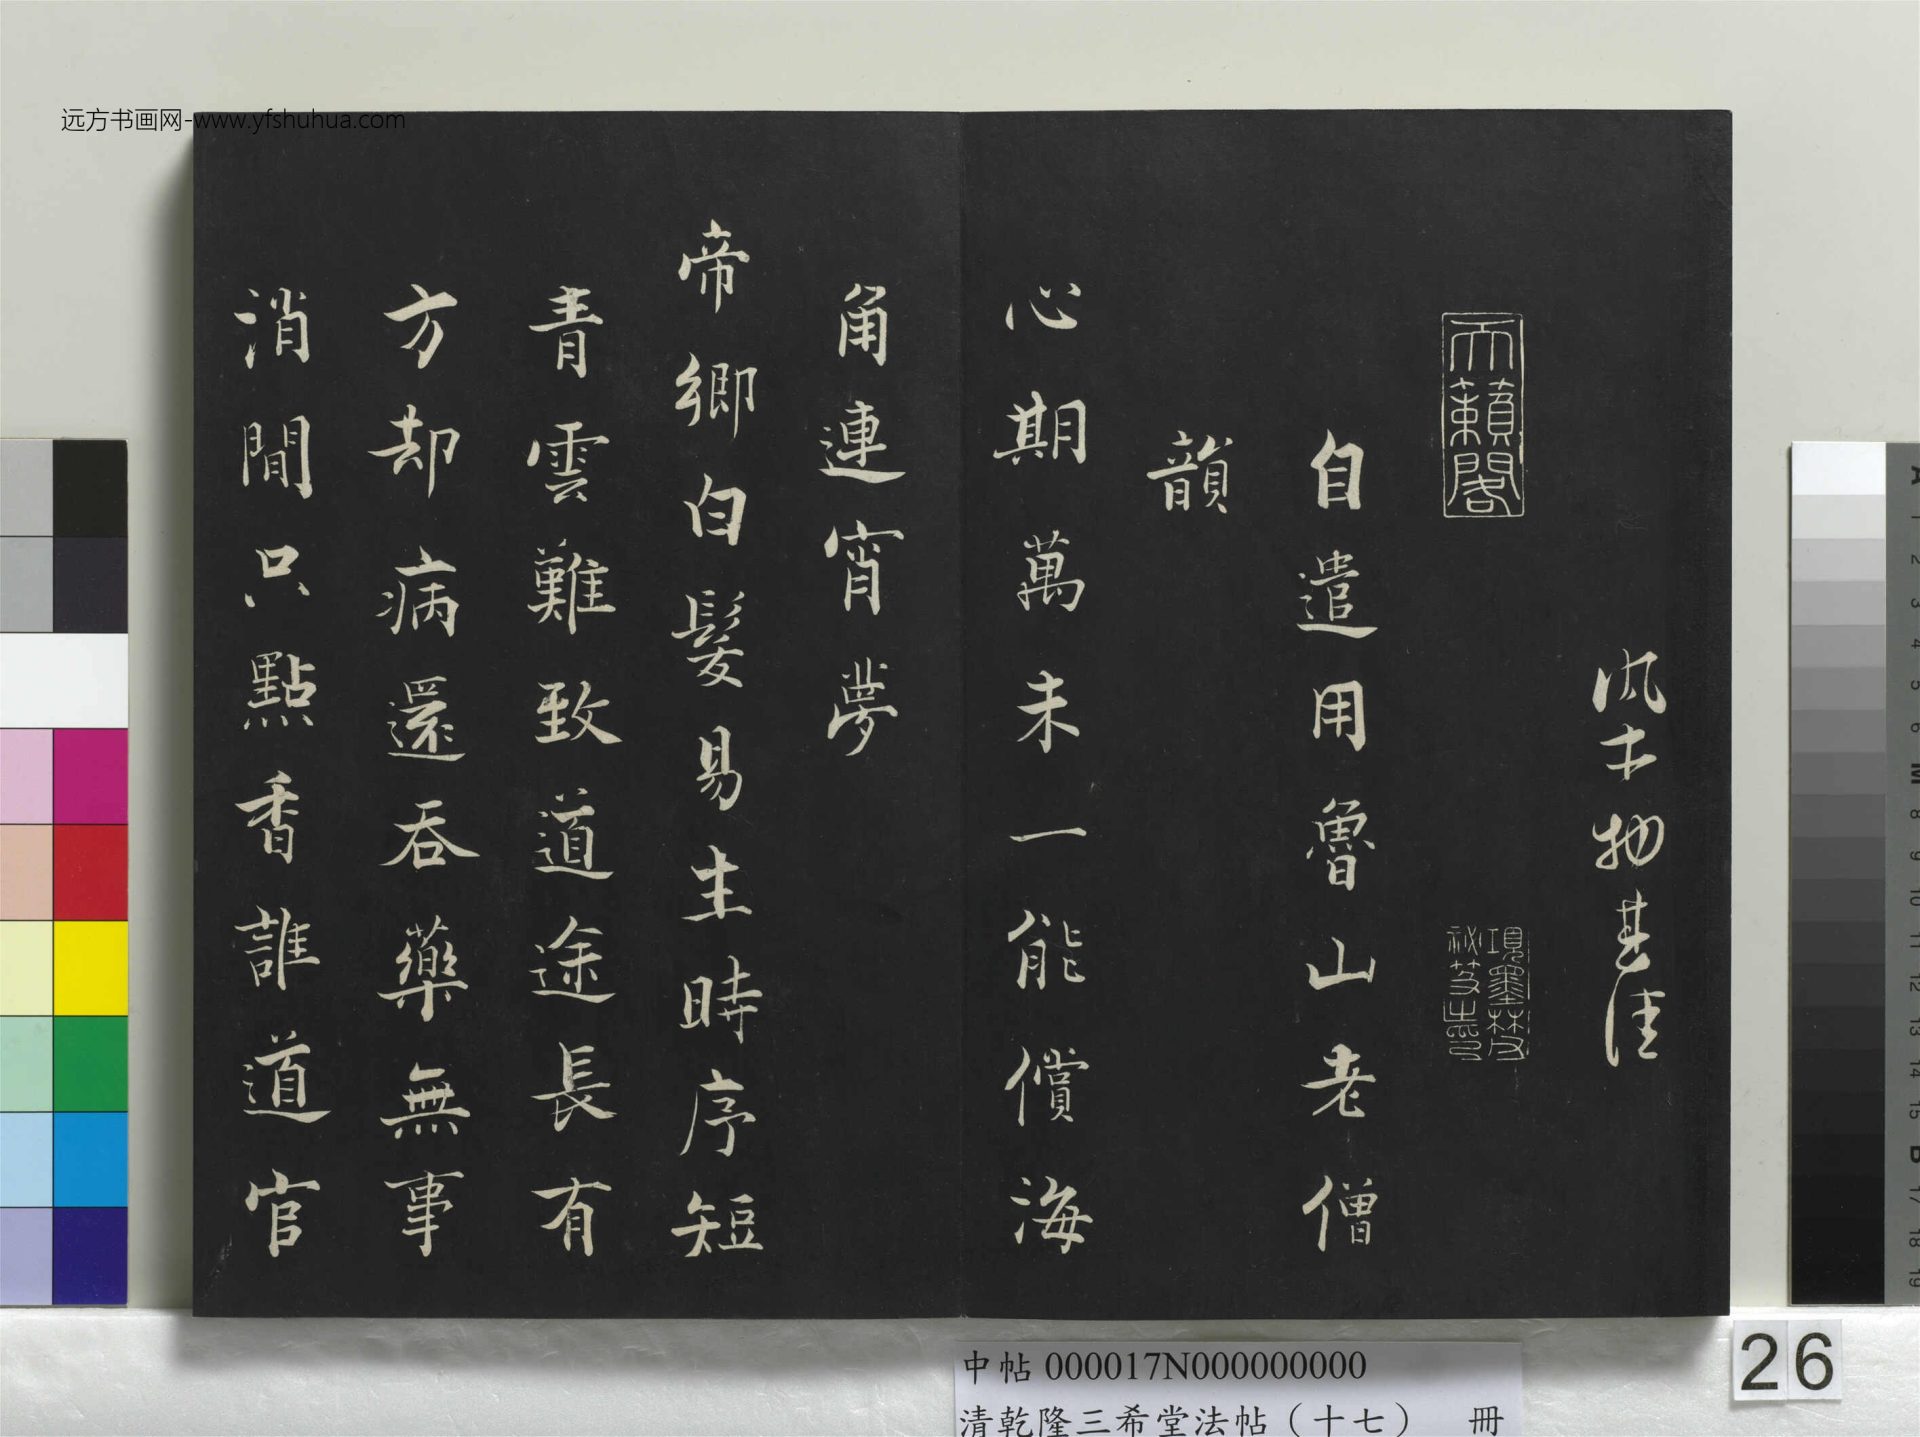 远方书画网-www.yfshuhua.com
天籟閣
項墨林父
祕笈之印
自遣用魯山老僧
韻
心期萬未一能償海
角連宵夢
帝鄉白髮易生時序短
青雲難致道途長有
方却病還吞藥無事
消閒只點香誰道官
中帖 000017N000000000
清乾隆三希堂法帖（十七） 冊
26